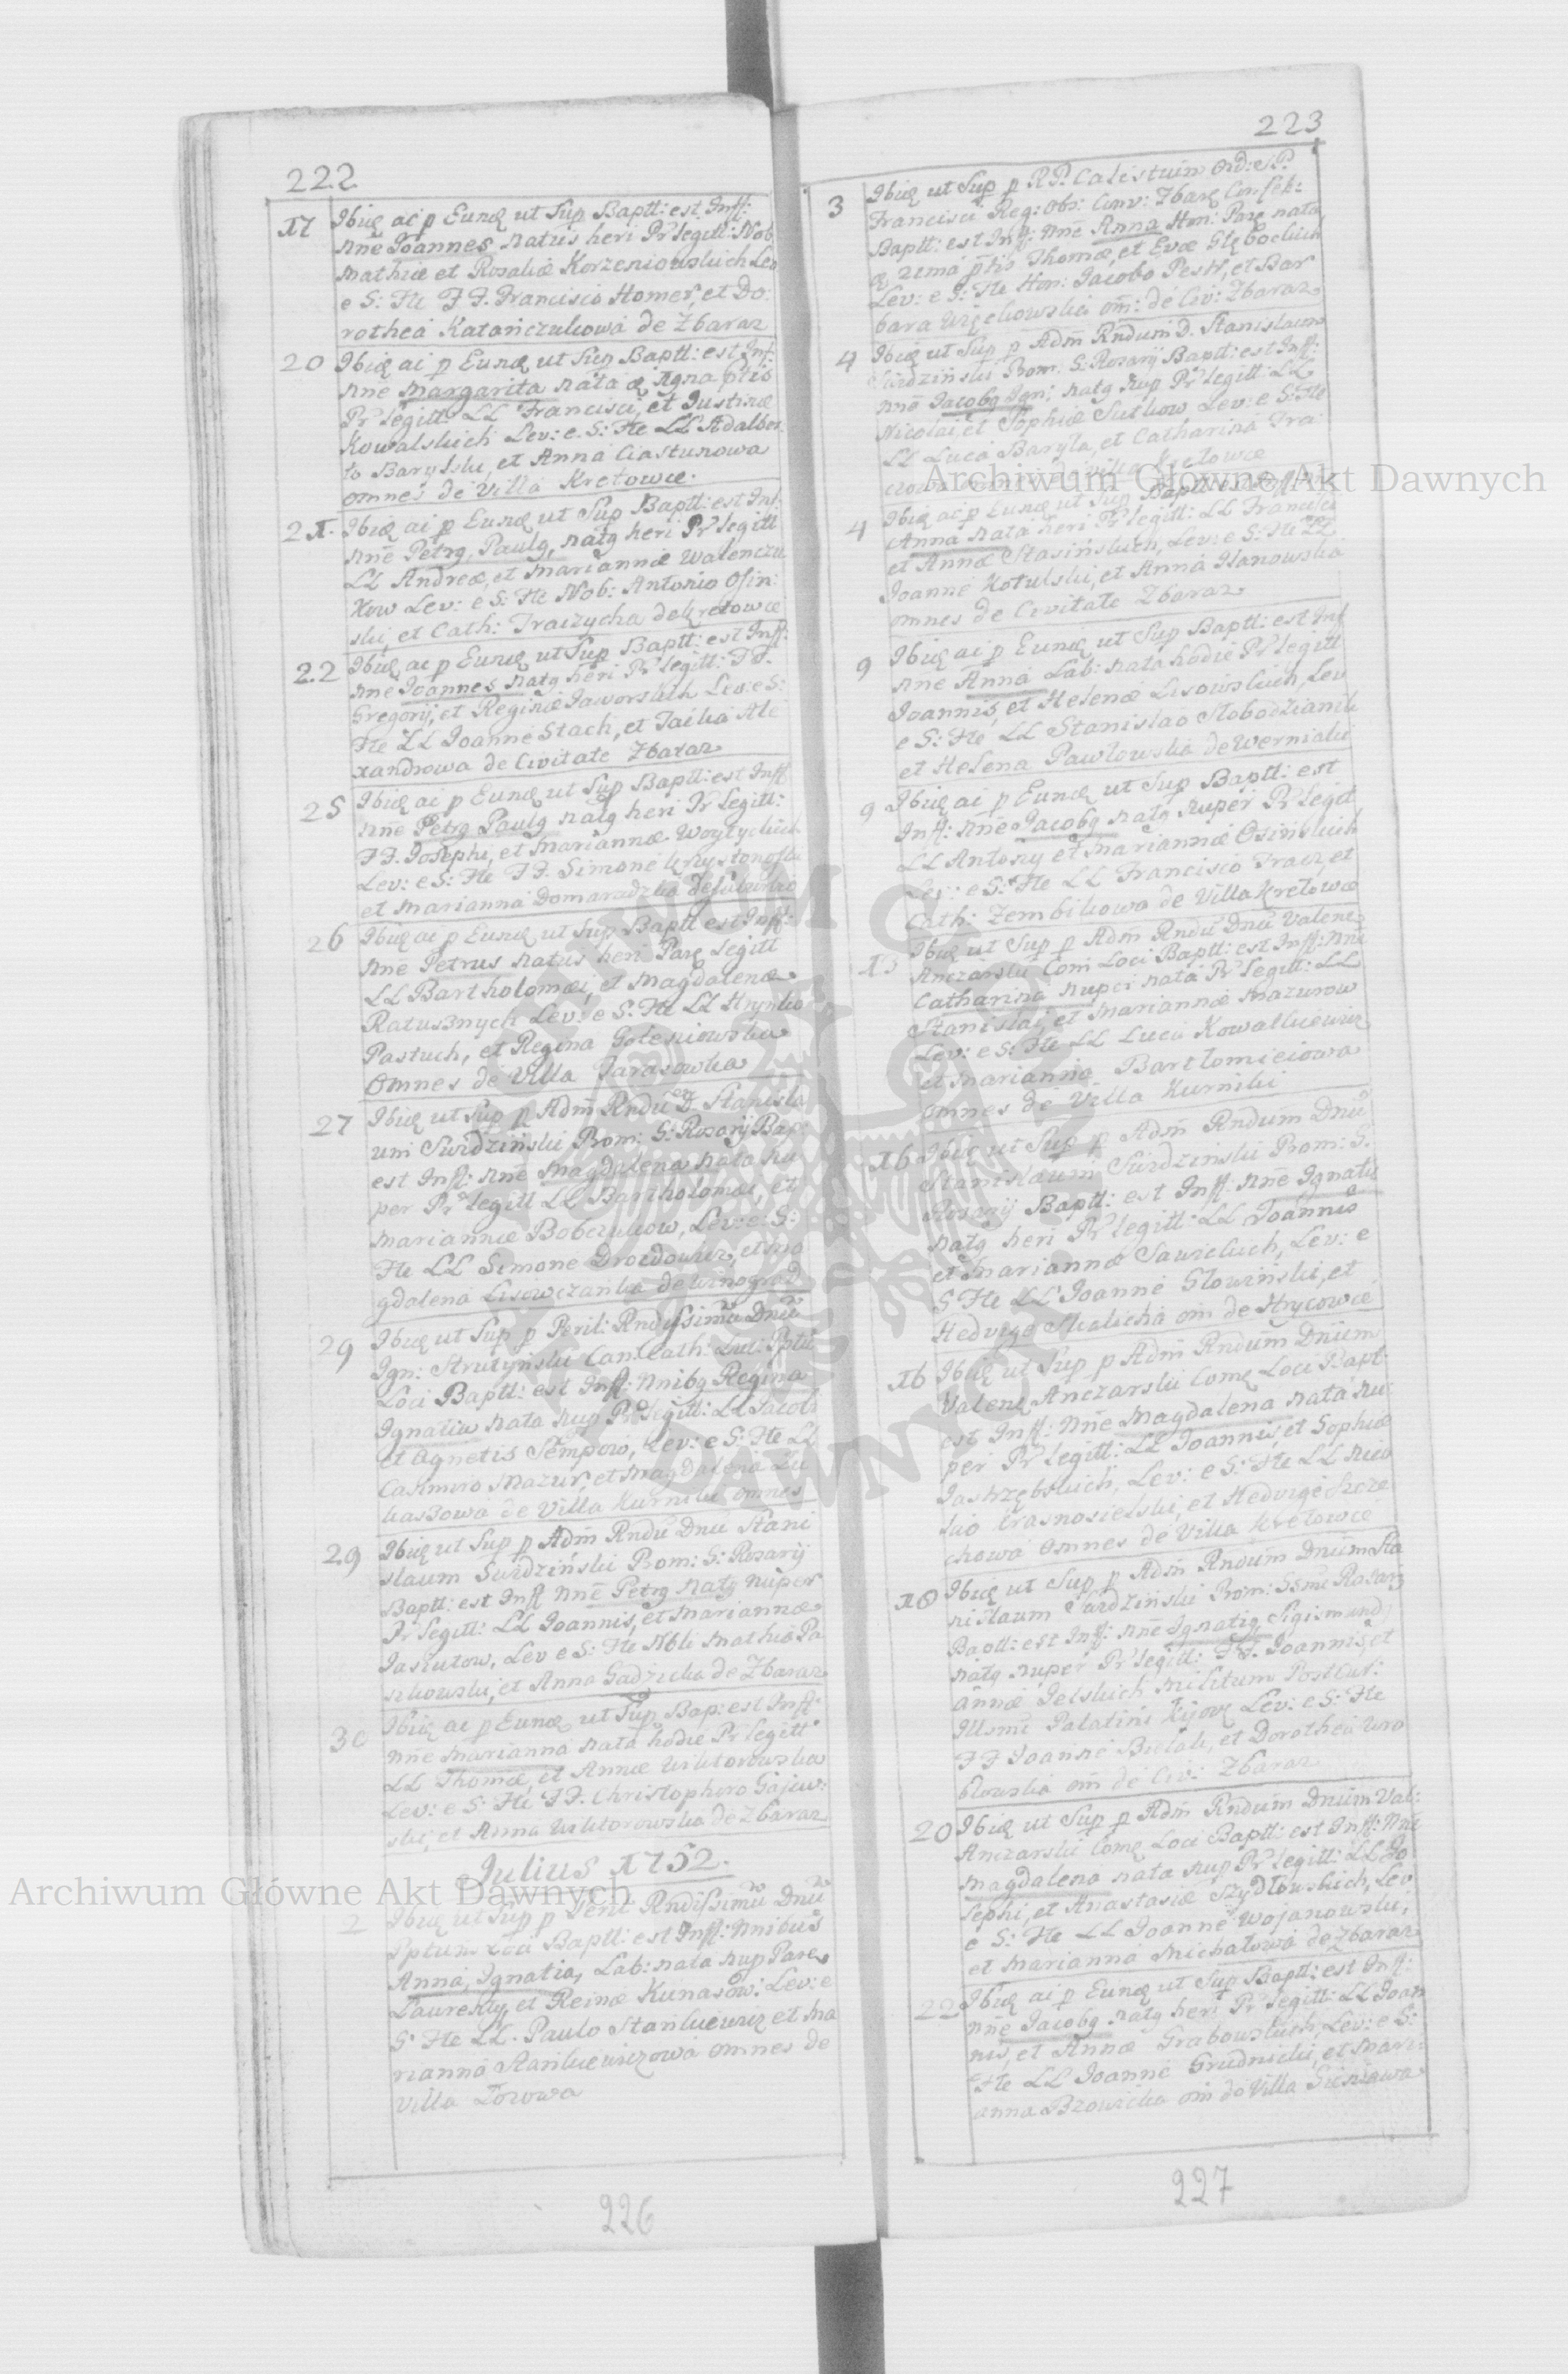 222
17 Ibidę ac p Eundę ut Sup Baptt: est Inff:
nñe Joannes natus heri Pr legitt: Nob
Mathiæ et Rosaliæ Korzeniowskich Lev
e S: Fte FF. Francisco Homer, et Do:
rothea Katarczukowa de Zbaraz
20 Ibidę ac p Eundę ut Sup Baptt: est Inf:
nñe Margarita nata
Pr legitt: LL Francisci, et Justinæ
Kowalskich Lev: e. S: Fte LL Adalber
to Barylski, et Anna Ciastunowa
omnes de Villa Kretowce.
21. Ibidę ac p Eundę ut Sup Baptt: est Inf:
nñe Petrg, Paulg, natg heri Pr legitt
LL Andreæ, et Mariannæ Walenczu
kow Lev: e S: Fte Nob: Antonio Osin:
ski, et Cath: Traczycha de Kretowce
22 Ibidę ac p Eundę ut Sup Baptt: est Inff:
nñe Joannes natg heri Pr legitt: FF.
Gregorij, et Reginæ Jaworskich Lev: e S:
Fte LL Joanne Stach, et Taćka Ale
xandrowa de Civitate Zbaraz
25 Ibidę ac p Eundę ut Sup Baptt: est Inff
nñe Petrg Paulg natg heri Pr legitt:
FF. Josephi, et Mariannæ Woytyckich
Lev: e S: Fte FF. Simone
et Marianna Domaradzka
26 Ibidę ac p Eundę ut Sup Baptt est Inff:
nñe Petrus natus heri Parę legitt
LL Bartholomæi, et Magdalenæ
Ratusznych Lev: e S: Fte LL Hrynko
Pastuch, et Regina Goleniowska
Omnes de Villa Tarasowka
27 Ibidę ut Sup p Adm Rndū D. Stanisla
um Surdziński Prom: S: Rosarij Bap:
est Inff: nñe Magdalena nata nu
per Pr legitt LL Bartholomæi, et
Mariannæ Bobczukow, Lev: e S:
Fte LL Simone et Ma
gdalena Lisowczanka de Winograd
29 Ibidę ut Sup p Peril: Rndissimū Dnū
Ign: Strutyński Can: Cath: Pptū
Loci Baptt: est Inff: Nnibg Regina
Ignatia nata nup Pr legitt: LL Jacobi
et Agnetis Sempow, Lev: e S: Fte LL
Casimiro Mazur, et Magdalena Lu
kaszowa de Villa Kurniki omnes
29 Ibidę ut Sup p Adm Rndū Dnū Stani
slaum Surdziński Prom: S: Rosarij
Baptt: est Inff Nñe Petrg natg nuper
Pr legitt: LL Joannis, et Mariannæ
Jasiutow, Lev e S: Fte Nbli Mathia Pa
szkowski, et Anna Gadzicka de Zbaraz
30 Ibidę ac p Eundę ut Sup Bap: est Inff:
nñe Marianna nata hodie Pr legitt:
LL Thomæ, et Annæ Wiktorowska
Lev: e S: Fte FF. Christophoro Gajew:
ski, et Anna Wiktorowska de Zbaraz
Julius 1752.
2 Ibidę ut Sup p Peril Rndissimū Dnū
Pptum Loci Baptt: est Inff: Nnibus
Anna, Ignatia, Lab: nata nup Pare
Laurentij, et Reinæ Kunasow: Lev: e
S: Fte LL. Paulo Stankiewicz et Ma
rianna Stankiewiczowa omnes de
Villa Łozowa
226
223
3 Ibidę ut Sup p RP. Calistum Ord: S.P.
Francisci Reg: Obs: Conv: Zbarę Confess:
Baptt: est Inff: nñe Anna Hon: Parę nata
Thomæ, et Evæ Głębockich
Lev: e S: Fte Hon: Jacobo Pestr, et Bar
bara om: de Civ: Zbaraz
4 Ibidę ut Sup p Adm Rndum D. Stanislaum
Surdziński Prom: S: Rosarij Baptt: est Inff:
nñe Jacobg Ign: natg nup Pr legitt: LL
Nicolai, et Sophiæ Sutkow Lev: e S: Fte
LL Luca Baryla, et Catharina Tra
czowa omnes de Villa Kretowce
4 Ibidę ac p Eundę ut Sup Baptt: est Inff: nñe
Anna nata heri Pr legitt: LL Francisci
et Annæ Stasińskich, Lev: e S: Fte LL
Joanne Kotulski, et Anna Ilanowska
omnes de Civitate Zbaraz
9 Ibidę ac p Eundę ut Sup Baptt: est Inf
nñe Anna Lab: nata hodie Pr legitt
Joannis, et Helenæ Lisowskich, Lev
e S: Fte LL Stanislao Slobodzianik
et Helena Pawłowska de Werniaki
9 Ibidę ac p Eundę ut Sup Baptt: est
Inff: nñe Jacobg natg nuper Pr legit
LL Antony et Mariannæ Osińskich
Lev: e S: Fte LL Francisco Tracz, et
Cath: Zembikowa de Villa Kretowce
13 Ibidę ut Sup p Adm Rndū Dnū Valenę
Anczarski Com Loci Baptt: est Inff: Nñe
Catharina nuper nata Pr legitt: LL
Stanislai, et Mariannæ Mazurow
Lev: e S: Fte LL Luca Kowalkiewicz
et Marianna Bartłomieiowa
omnes de Villa Kurniki
16 Ibidę ut Sup p Adm Rndum Dnū
Stanislaum Surdzinski Prom: S.
Rosarij Baptt: est Inff: nñe Ignatig
natg heri Pr legitt: LL Joannis
et Mariannæ Lev: e
S Fte LL Joanne Glowiński, et
Hedvige Skalicha om de Hrycowce
16 Ibidę ut Sup p Adm Rndum Dnum
Valenę Anczarski Comę Loci Bapt:
est Inff: Nñe Magdalena nata nu
per Pr legitt: LL Joannis, et Sophiæ
Jastrzębskich, Lev: e S: Fte LL Nico
lao Krasnosielski, et Hedvige Szcze
chowa omnes de Villa Kretowce
18 Ibidę ut Sup p Adm Rndum Dnum Sta
nislaum Surdziński Prom: SSmi Rosarij
Baptt: est Inff: nñe Ignatig, Sigismundg
natg nuper Pr legitt: FF. Joannis, et
Annæ Jelskich Militum
Illsmi Palatini Kijovę Lev: e S: Fte
FF Joanne Bielak, et Dorothea Wro
blowska om de Civ: Zbaraz
20 Ibidę ut Sup p Adm Rndum Dnum Val:
Anczarski Comę Loci Baptt: est Inff: Nñe
Magdalena nata nup Pr legitt: LL Jo
sephi, et Anastasiæ Szydłowskich, Lev
e S: Fte LL Joanne Wojanowski,
et Marianna Michałowa de Zbaraz
22 Ibidę ac p Eundę ut Sup Baptt: est Inff:
nñe Jacobg natg heri Pr legitt: LL Joan
nis, et Annæ Grabowskich, Lev: e S:
Fte LL Joanne Grudnicki, et Mari
anna Bzowicka om de Villa Sieniawa
227
Archiwum Główne Akt Dawnych
Archiwum Główne Akt Dawnych